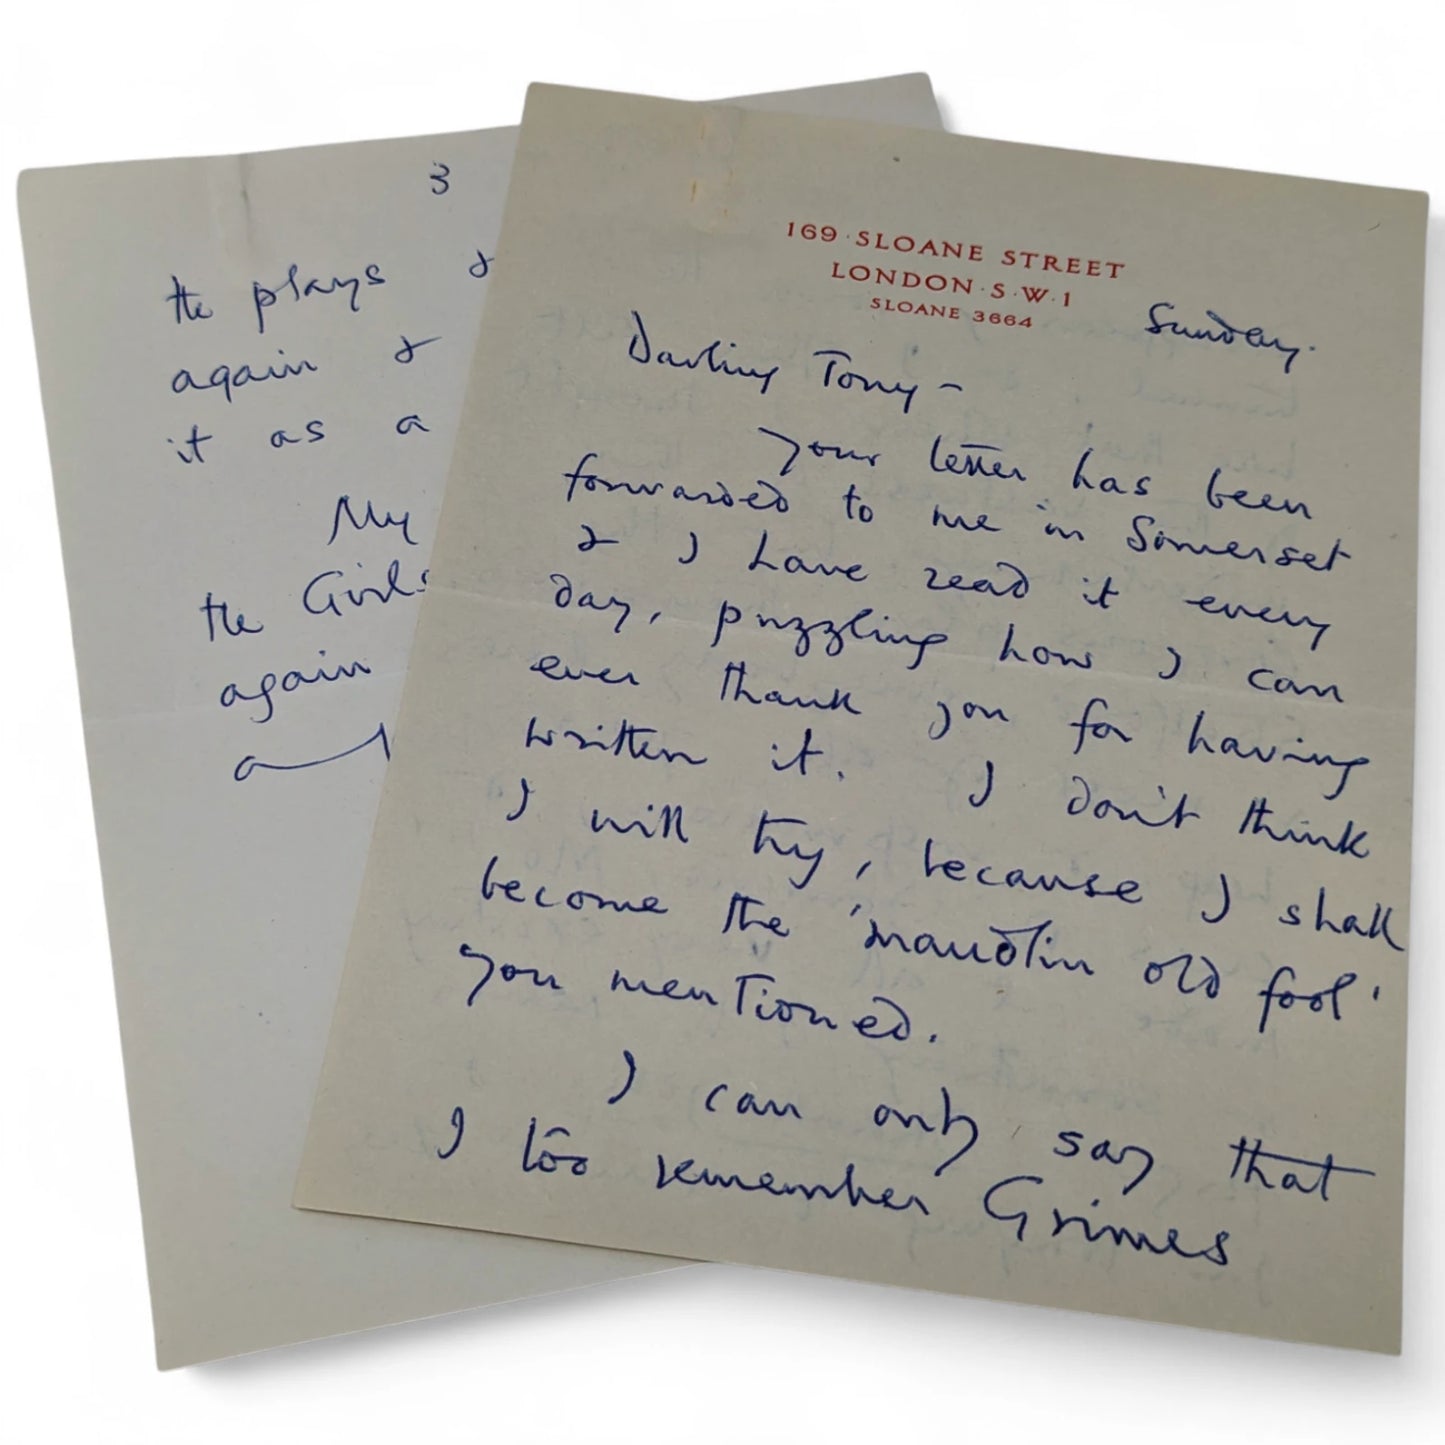 3
the plays &
again &
it as a
My
the Girls
again
a
169 · SLOANE STREET
LONDON · S · W · 1
SLOANE 3664
Sunday.
Darling Tony –
Your letter has been
forwarded to me in Somerset
& I have read it every
day, puzzling how I can
ever thank you for having
written it. I don't think
I will try, because I shall
become the 'maudlin old fool'
you mentioned.
I can only say that
I too remember Grimes